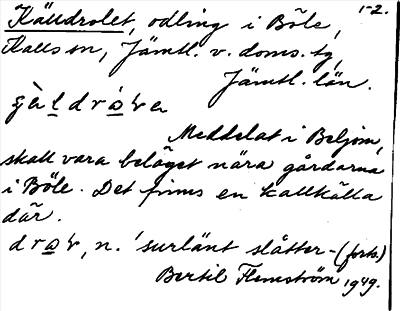 Källdrolet, odling i Böle, 1-2.
Kalls sn, Jämtl. v. doms. tg,
Jämtl. län.
Meddelat i Beljom,
skall vara beläget nära gårdarna
i Böle. Det finns en kallkälla
där.
n. 'surlänt slåtter-(forts.)
Bertil Flemström 1949.